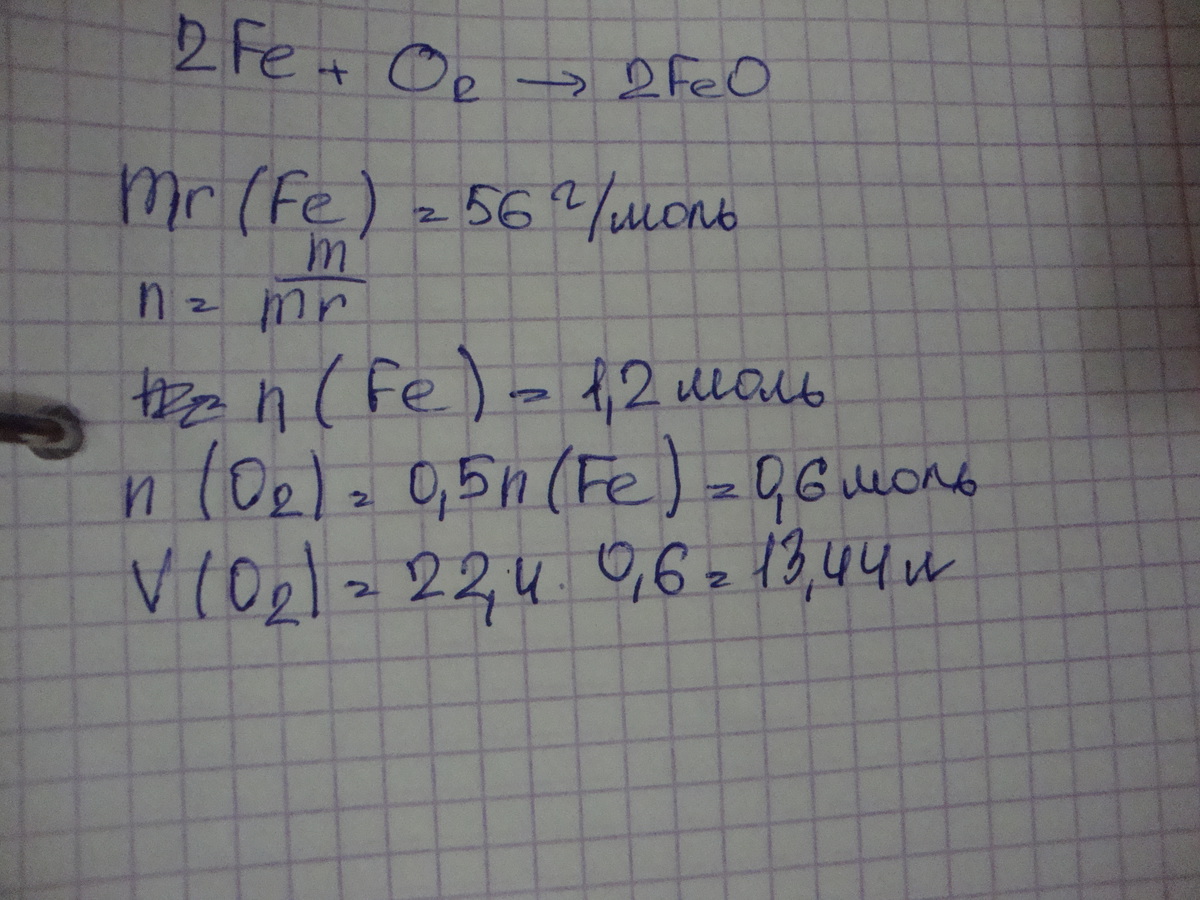 2Fe + O₂ → 2FeO
Mr (Fe) = 56 г/моль
n = m/mr
n (Fe) = 1,2 моль
n (O₂) = 0,5n (Fe) = 0,6 моль
V (O₂) = 22,4 · 0,6 = 13,44 л